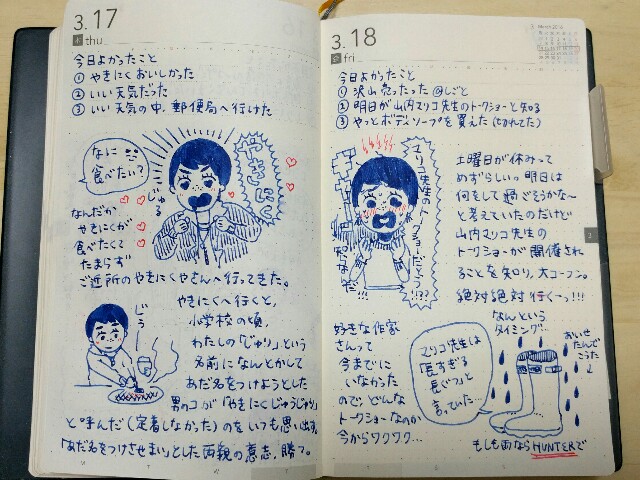 3.17
thu
今日よかったこと
① やきにくおいしかった
② いい天気だった
③ いい天気の中、郵便局へ行けた
なに
食べたい?
やきにく
じゅる
なんだか
やきにくが
食べたくて
たまらず
ご近所のやきにくやさんへ行ってきた。
じゅー
やきにくへ行くと、
小学校の頃、
わたしの「じゅり」という
名前になんとかして
あだ名をつけようとした
男のコが「やきにくじゅうじゅり」
と呼んだ(定着しなかった)のをいつも思い出す。
「あだ名をつけさせまい」とした両親の意志、勝つ。
3.18
fri
今日よかったこと
① 沢山売ったった @しごと
② 明日が山内マリコ先生のトークショーと知る
③ やっとボディソープを買えた(切れてた)
マリコ先生のトークショーだとう!!??
土曜日が休みって
めずらしいっ明日は
何をして過ごそうかな〜
と考えていたのだけど
山内マリコ先生の
トークショーが開催され
ることを知り、大コーフン。
絶対絶対行くーっ!!!
なんという
タイミング…
好きな作家
さんって
今までに
いなかった
ので、どんな
トークショーなのか
今からワクワク…
マリコ先生は
「長すぎる
長ぐつ」と
言っていた…
あいせ
たんで
こうた
もしも雨ならHUNTERで